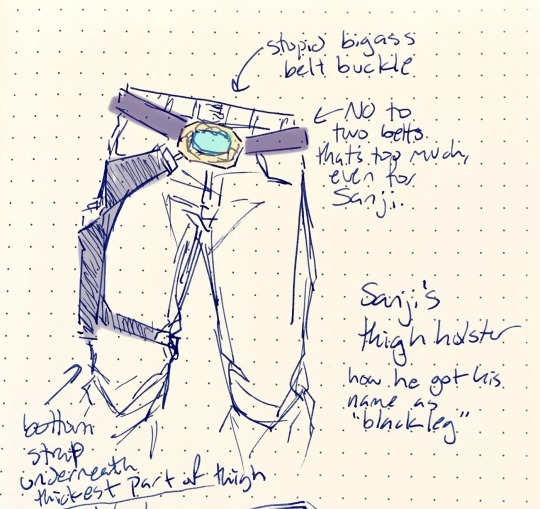 stupid bigass
belt buckle
NO to
two belts.
thats too much,
even for
Sanji.
Sanji's
thigh holster
how he got his
name as
"blackleg"
bottom
strap
underneath
thickest part of thigh